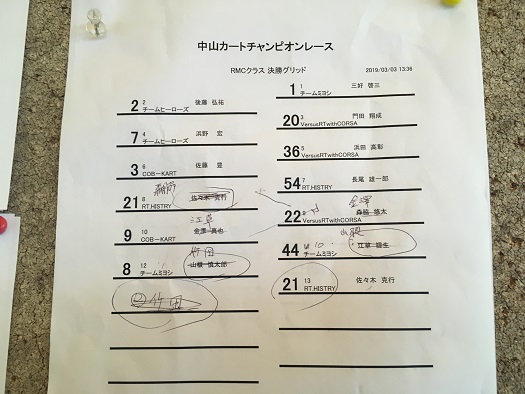 中山カートチャンピオンレース
RMCクラス 決勝グリッド
2019/03/03 13:36
1 1 三好 啓三
チームミヨシ
2 2 後藤 弘祐
チームヒーローズ
20 3 門田 翔成
VersusRTwithCORSA
7 4 浜野 宏
チームヒーローズ
36 5 浜田 高彰
VersusRTwithCORSA
3 6 佐藤 豊
COB-KART
54 7 長尾 雄一郎
RT.HISTRY
21 8 佐々木 克行
RT.HISTRY
金澤
22 森脇 悠太
VersusRTwithCORSA
江草
9 10 金澤 典也
COB-KART
山根
44 江草 瑠生
チームミヨシ
竹田
8 12 山根 慎太郎
チームミヨシ
21 13 佐々木 克行
RT.HISTRY
竹田